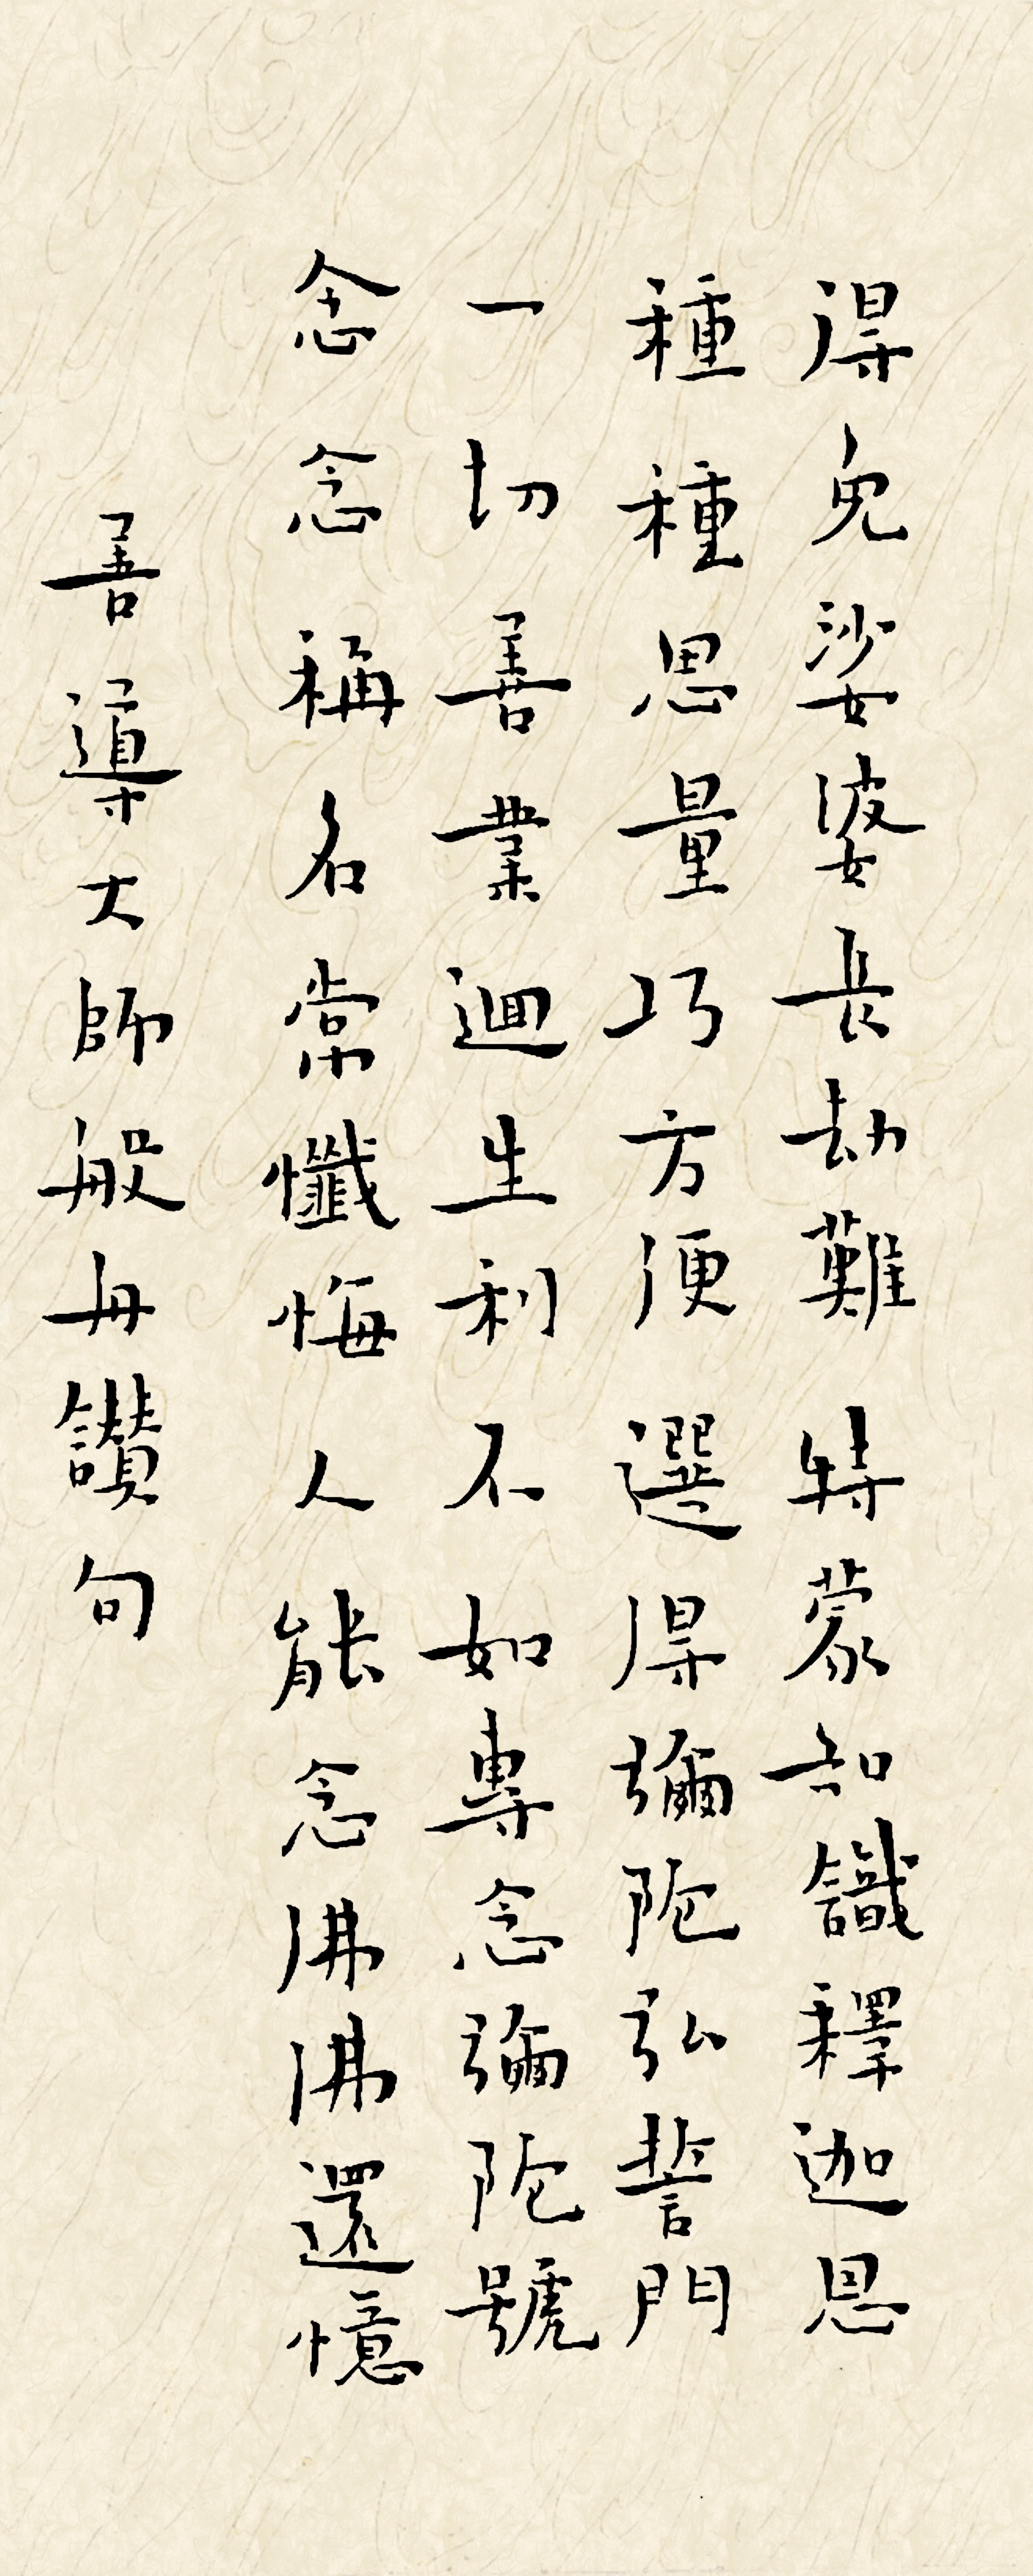 得免娑婆長劫難特蒙知識釋迦恩
種種思量巧方便選得彌陀弘誓門
一切善業迴生利不如專念彌陀號
念念稱名常懺悔人能念佛佛還憶
善導大師般舟讚句